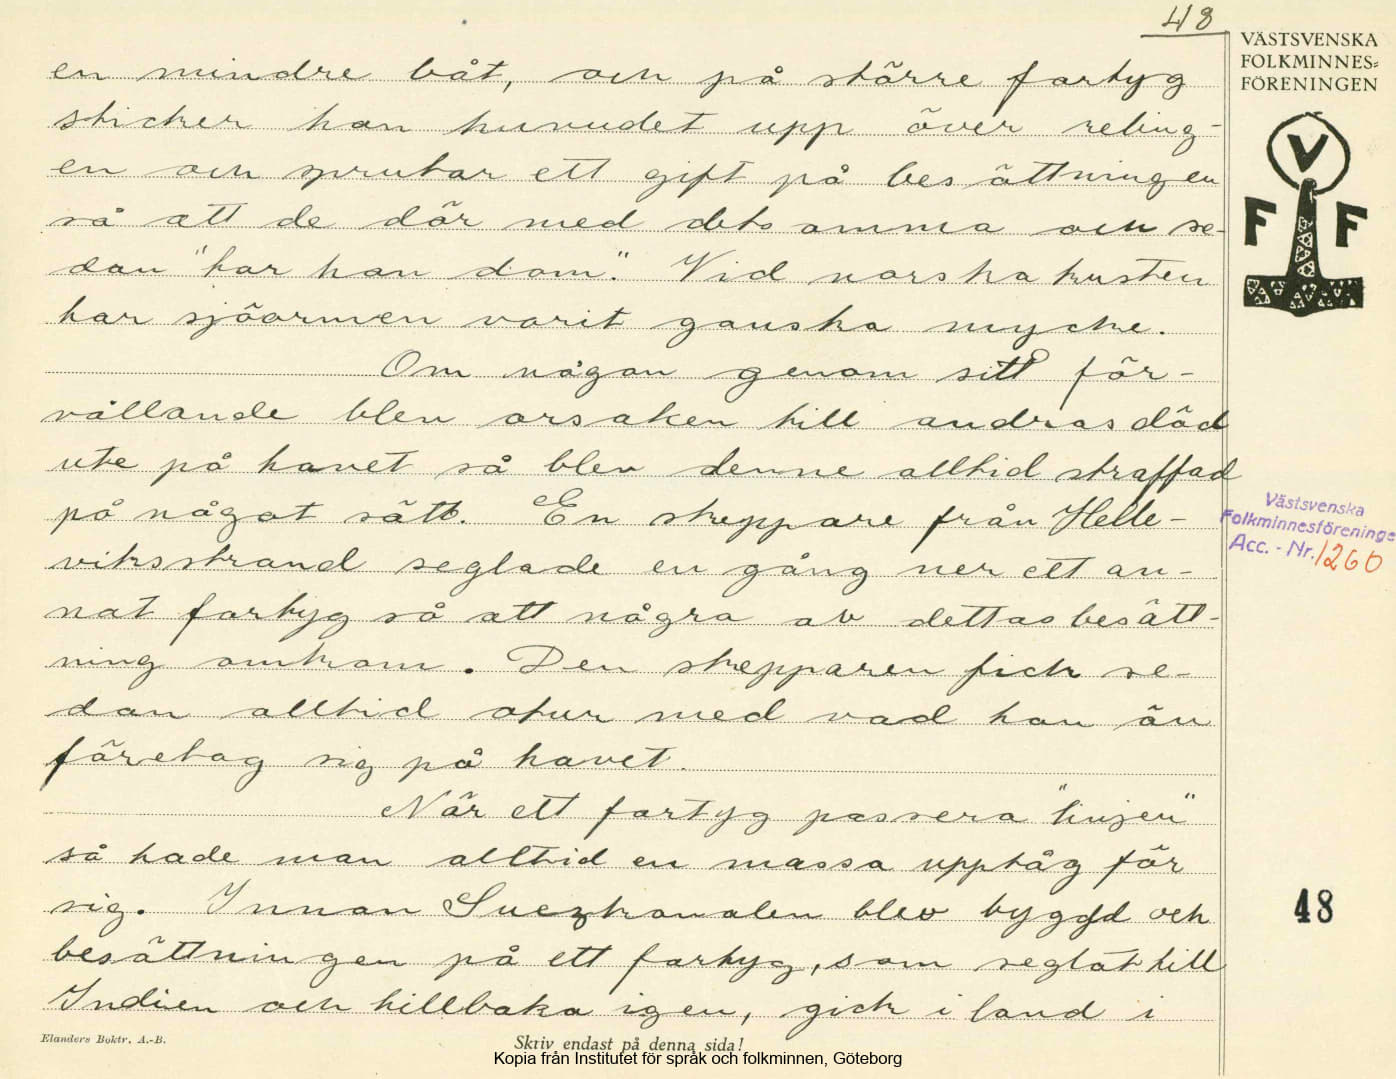 48
VÄSTSVENSKA
FOLKMINNES=
FÖRENINGEN
V
F F
en mindre båt, och på större fartyg
sticker han huvudet upp över reling-
en och sprutar ett gift på besättningen
så att de dör med detsamma och se-
dan "tar han dom". Vid norska kusten
har sjöormen varit ganska mycke.
Om någon genom sitt för-
vållande blev orsaken till andras död
ute på havet så blev denne alltid straffad
på något sätt. En skeppare från Helle-
viksstrand seglade en gång ner ett an-
nat fartyg så att några av dettas besätt-
ning omkom. Den skepparen fick se-
dan alltid otur med vad han än
företog sig på havet.
När ett fartyg passera "linjen"
så hade man alltid en massa upptåg för
sig. Innan Suezkanalen blev byggd och
besättningen på ett fartyg, som seglat till
Indien och tillbaka igen, gick i land i
Västsvenska
Folkminnesföreninge
Acc. - Nr. 1260
48
Elanders Boktr. A.-B.
Skriv endast på denna sida!
Kopia från Institutet för språk och folkminnen, Göteborg